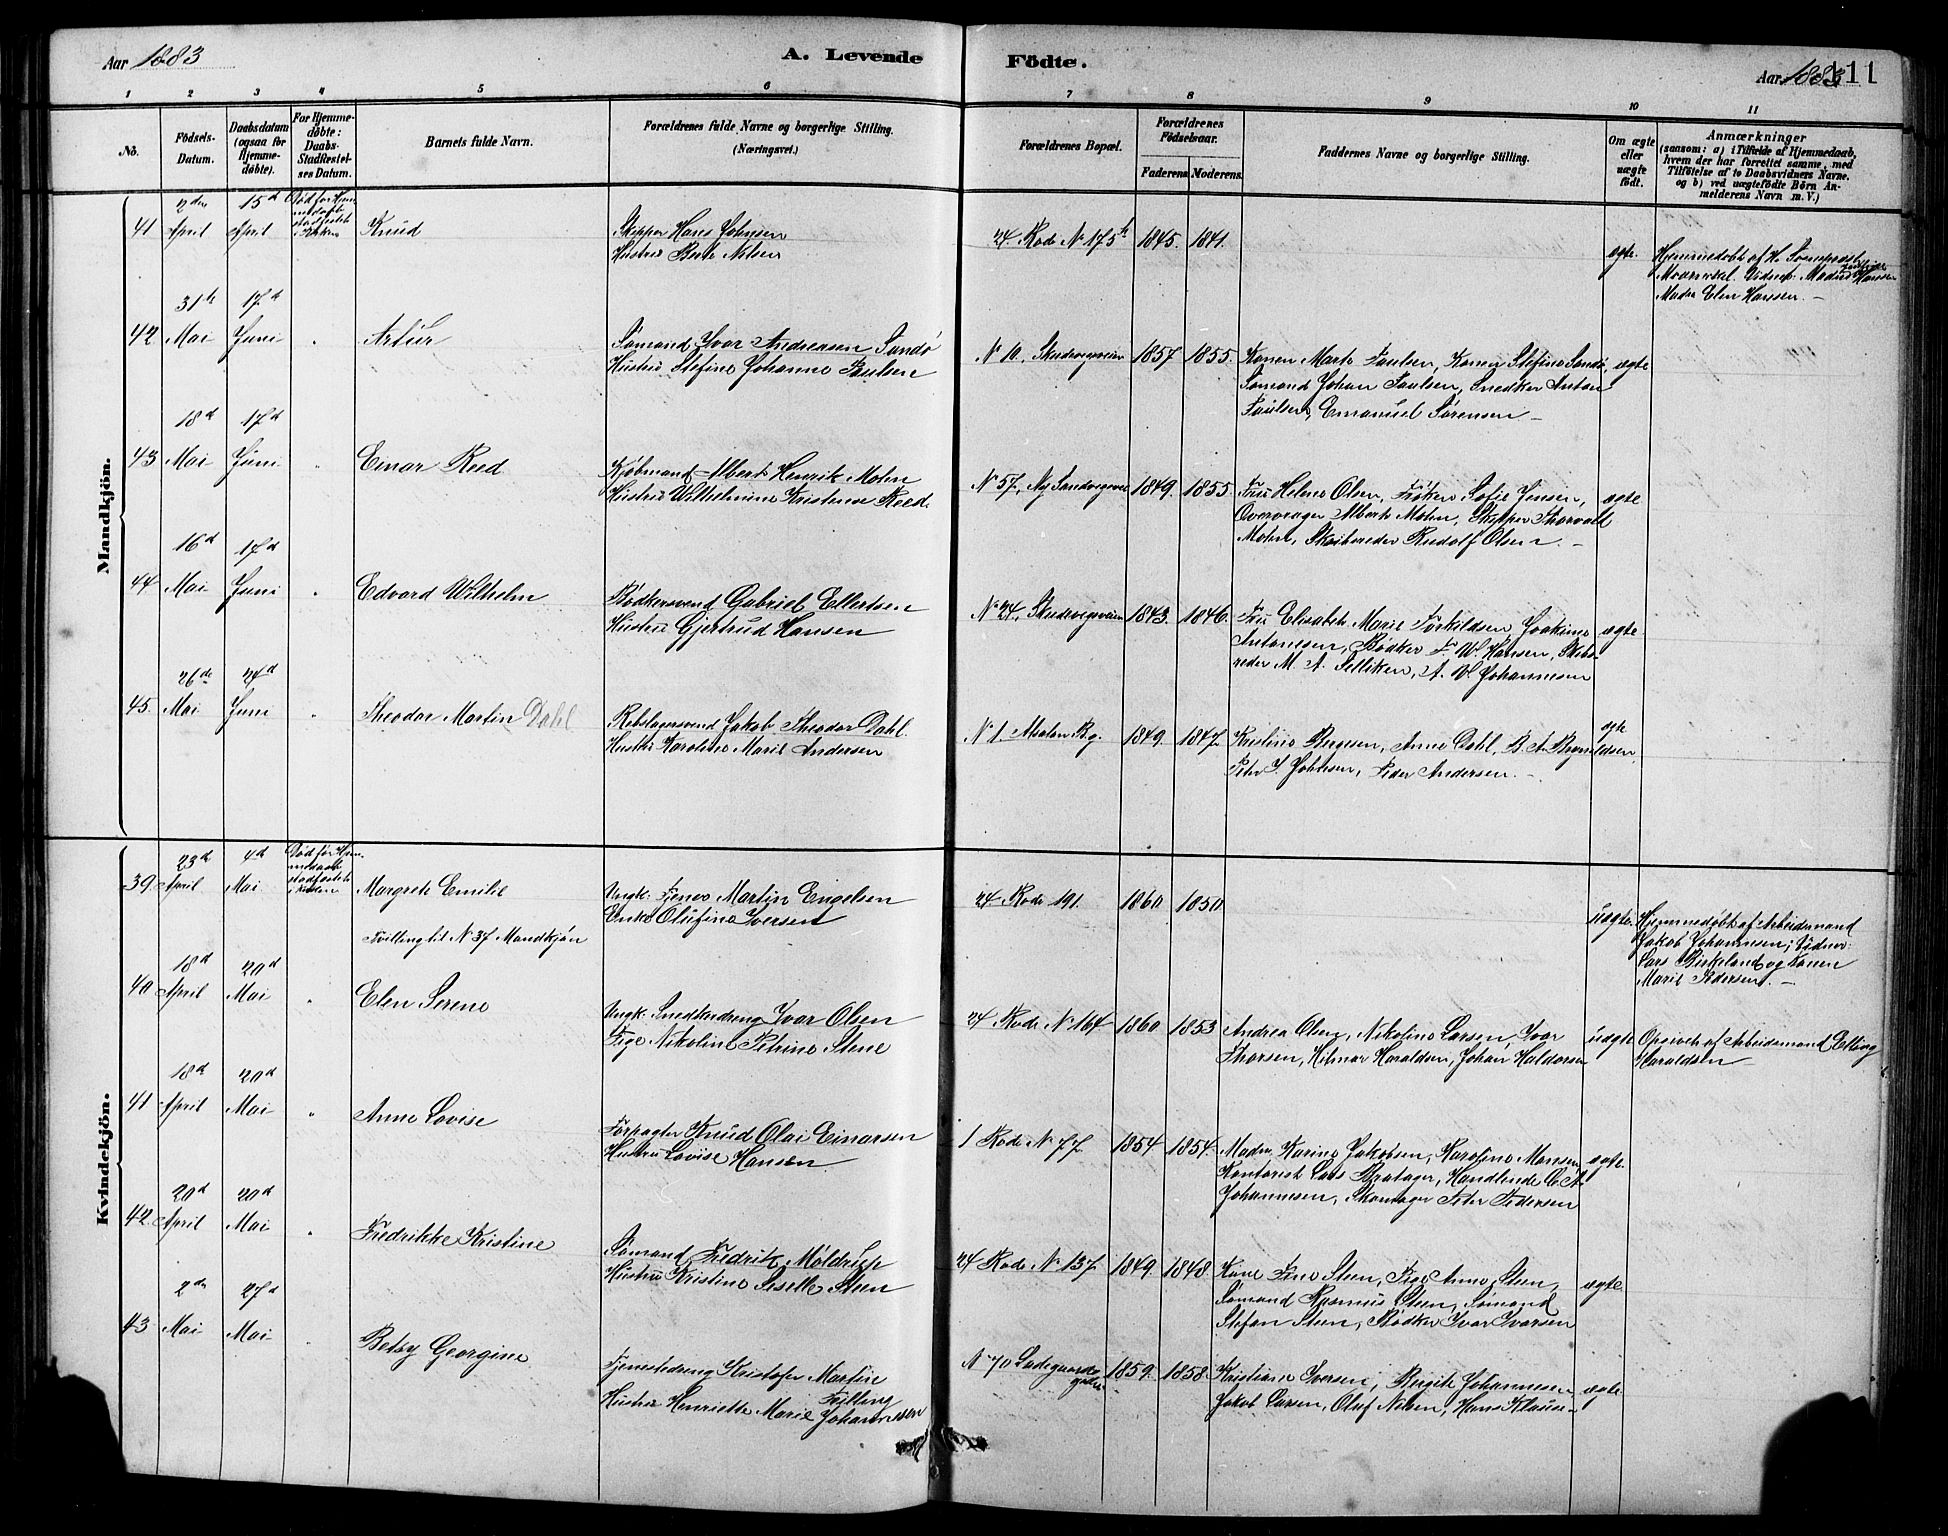 Aar 1883
A. Levende
Födte.
Aar 1883
111
1 2 3 4 5 6 7 8 9 10 11
No.
Födsels-Datum.
Daabsdatum (ogsaa for Hjemme-døbte).
For Hjemme-døbte: Daabs-Stadfæstel-ses Datum.
Barnets fulde Navn.
Forældrenes fulde Navne og borgerlige Stilling. (Næringsvei.)
Forældrenes Bopæl.
Forældrenes Fødselsaar.
Faderens. Moderens.
Faddernes Navne og borgerlige Stilling.
Om ægte eller uægte født.
Anmærkninger
(saasom: a) i Tilfælde af Hjemmedaab,
hvem der har forrettet samme, med
Tilföielse af to Daabsvidners Navne.
og b) ved uægtefödte Börn An-
melderens Navn m. V.)
Mandkjön.
41 2den April 15d April Død før Hjemmedaab stadfæstet i Kirken Knud
Skipper Hans Johnsen
Hustru Berte Nilsen
24 Rode N 175 b 1845. 1841. ægte.
Hjemmedøbt af H. Sognepræst
Madm Hansen
Madm Elen Hansen. —
42 31te Mai 17d Juni " Artur
Sømand Ivar Andreasen Sandø
Hustru Stefine Johanne Paulsen
N 10. Skudevigsveien 1857 1855. Konen Marte Paulsen, Konen Stefine Sandø, ægte
Sømand Johan Paulsen, Snedker Anton
Paulsen, Emanuel Sørensen —
43 18d Mai 17d Juni " Einar Reed
Kjøbmand Albert Henrik Mohn
Hustru Wilhelmine Kristense Reed.
N 57, Ny Sandvigsvei 1849. 1855. Fru Helene Olsen, Frøken Sofie Jensen, ægte
Albert Mohn, Skipper Thorvald
Mohn, Skibsreder Rudolf Olsen. —
44 16d Mai 17d Juni " Edvard Wilhelm
Bødkersvend Gabriel Ellertsen
Hustru Gjertrud Hansen
N 24, Skudevigsveien 1843. 1846. Fru Elisabeth Marie Torkildsen, Joakime ægte
Antonesen, Bødker F. W. Hansen, Skibs-
reder M. A. Selliken, A. W. Johannesen
45. 26de Mai 24d Juni " Theodor Martin Dahl
Rebslagersvend Jakob Theodor Dahl.
Hustru Karoline Marie Andersen
N 1. 1849. 1847. Kristine Børgesen, Anne Dahl, B. A. Brynildsen, ægte
Peter J. Johnsen, Peder Andersen. —
Kvindekjön.
39. 23de April 4d Mai Død før Hjemmedaab stadfæstet i Kirken Margrete Emilie
Tvilling til N 37 Mandkjøn
Ungk: Tjener Martin Engelsen
Enke Olufine Iversen
24 Rode 191. 1860 1850. uægte.
Hjemmedøbt af Arbeidsmand
Jakob Johannesen; Vidner:
Lars Birkeland og Konen
Marie Pedersen. —
40 18d April 20d Mai " Elen Serene
Ungk: Snedkerdreng Ivar Olsen
Pige Nikoline Petrine Stene
24 Rode N 164 1860. 1853 Andrea Olsen, Nikoline Larsen, Ivar uægte
Thorsen, Hilmar Haraldsen, Johan Haldorsen
Opgivet af Arbeidsmand Elling
Haraldsen —
41 18d April 20d Mai " Anne Lovise
Forpagter Knud Olai Einarsen
Hustru Lovise Hansen
1 Rode N 77. 1854 1854. Madm Karine Jakobsen, Karoline Monsen, ægte.
Kontorist Lars Bratager, Handlende C. A.
Johannesen, Skomager Peter Pedersen
42. 20d April 20d Mai " Fredrikke Kristine
Sømand Fredrik Møldrup
Hustru Kristine Seselle Steen
24 Rode N 137. 1849. 1848. Kone Stene Steen, Pige Anne Steen, ægte
Sømand Rasmus Steen, Sømand
Stefan Steen, Bødker Ivar Ivarsen
43. 2den Mai 27d Mai " Betsy Georgine
Tjenestedreng Kristofer Martin
Fylling
Hustru Henriette Marie Johannesen
N 70 Ladegaardsgaden 1859. 1858. Kristiane Iversen, Bergite Johannesen ægte
Jakob Larsen, Oluf Nilsen, Hans Klausen